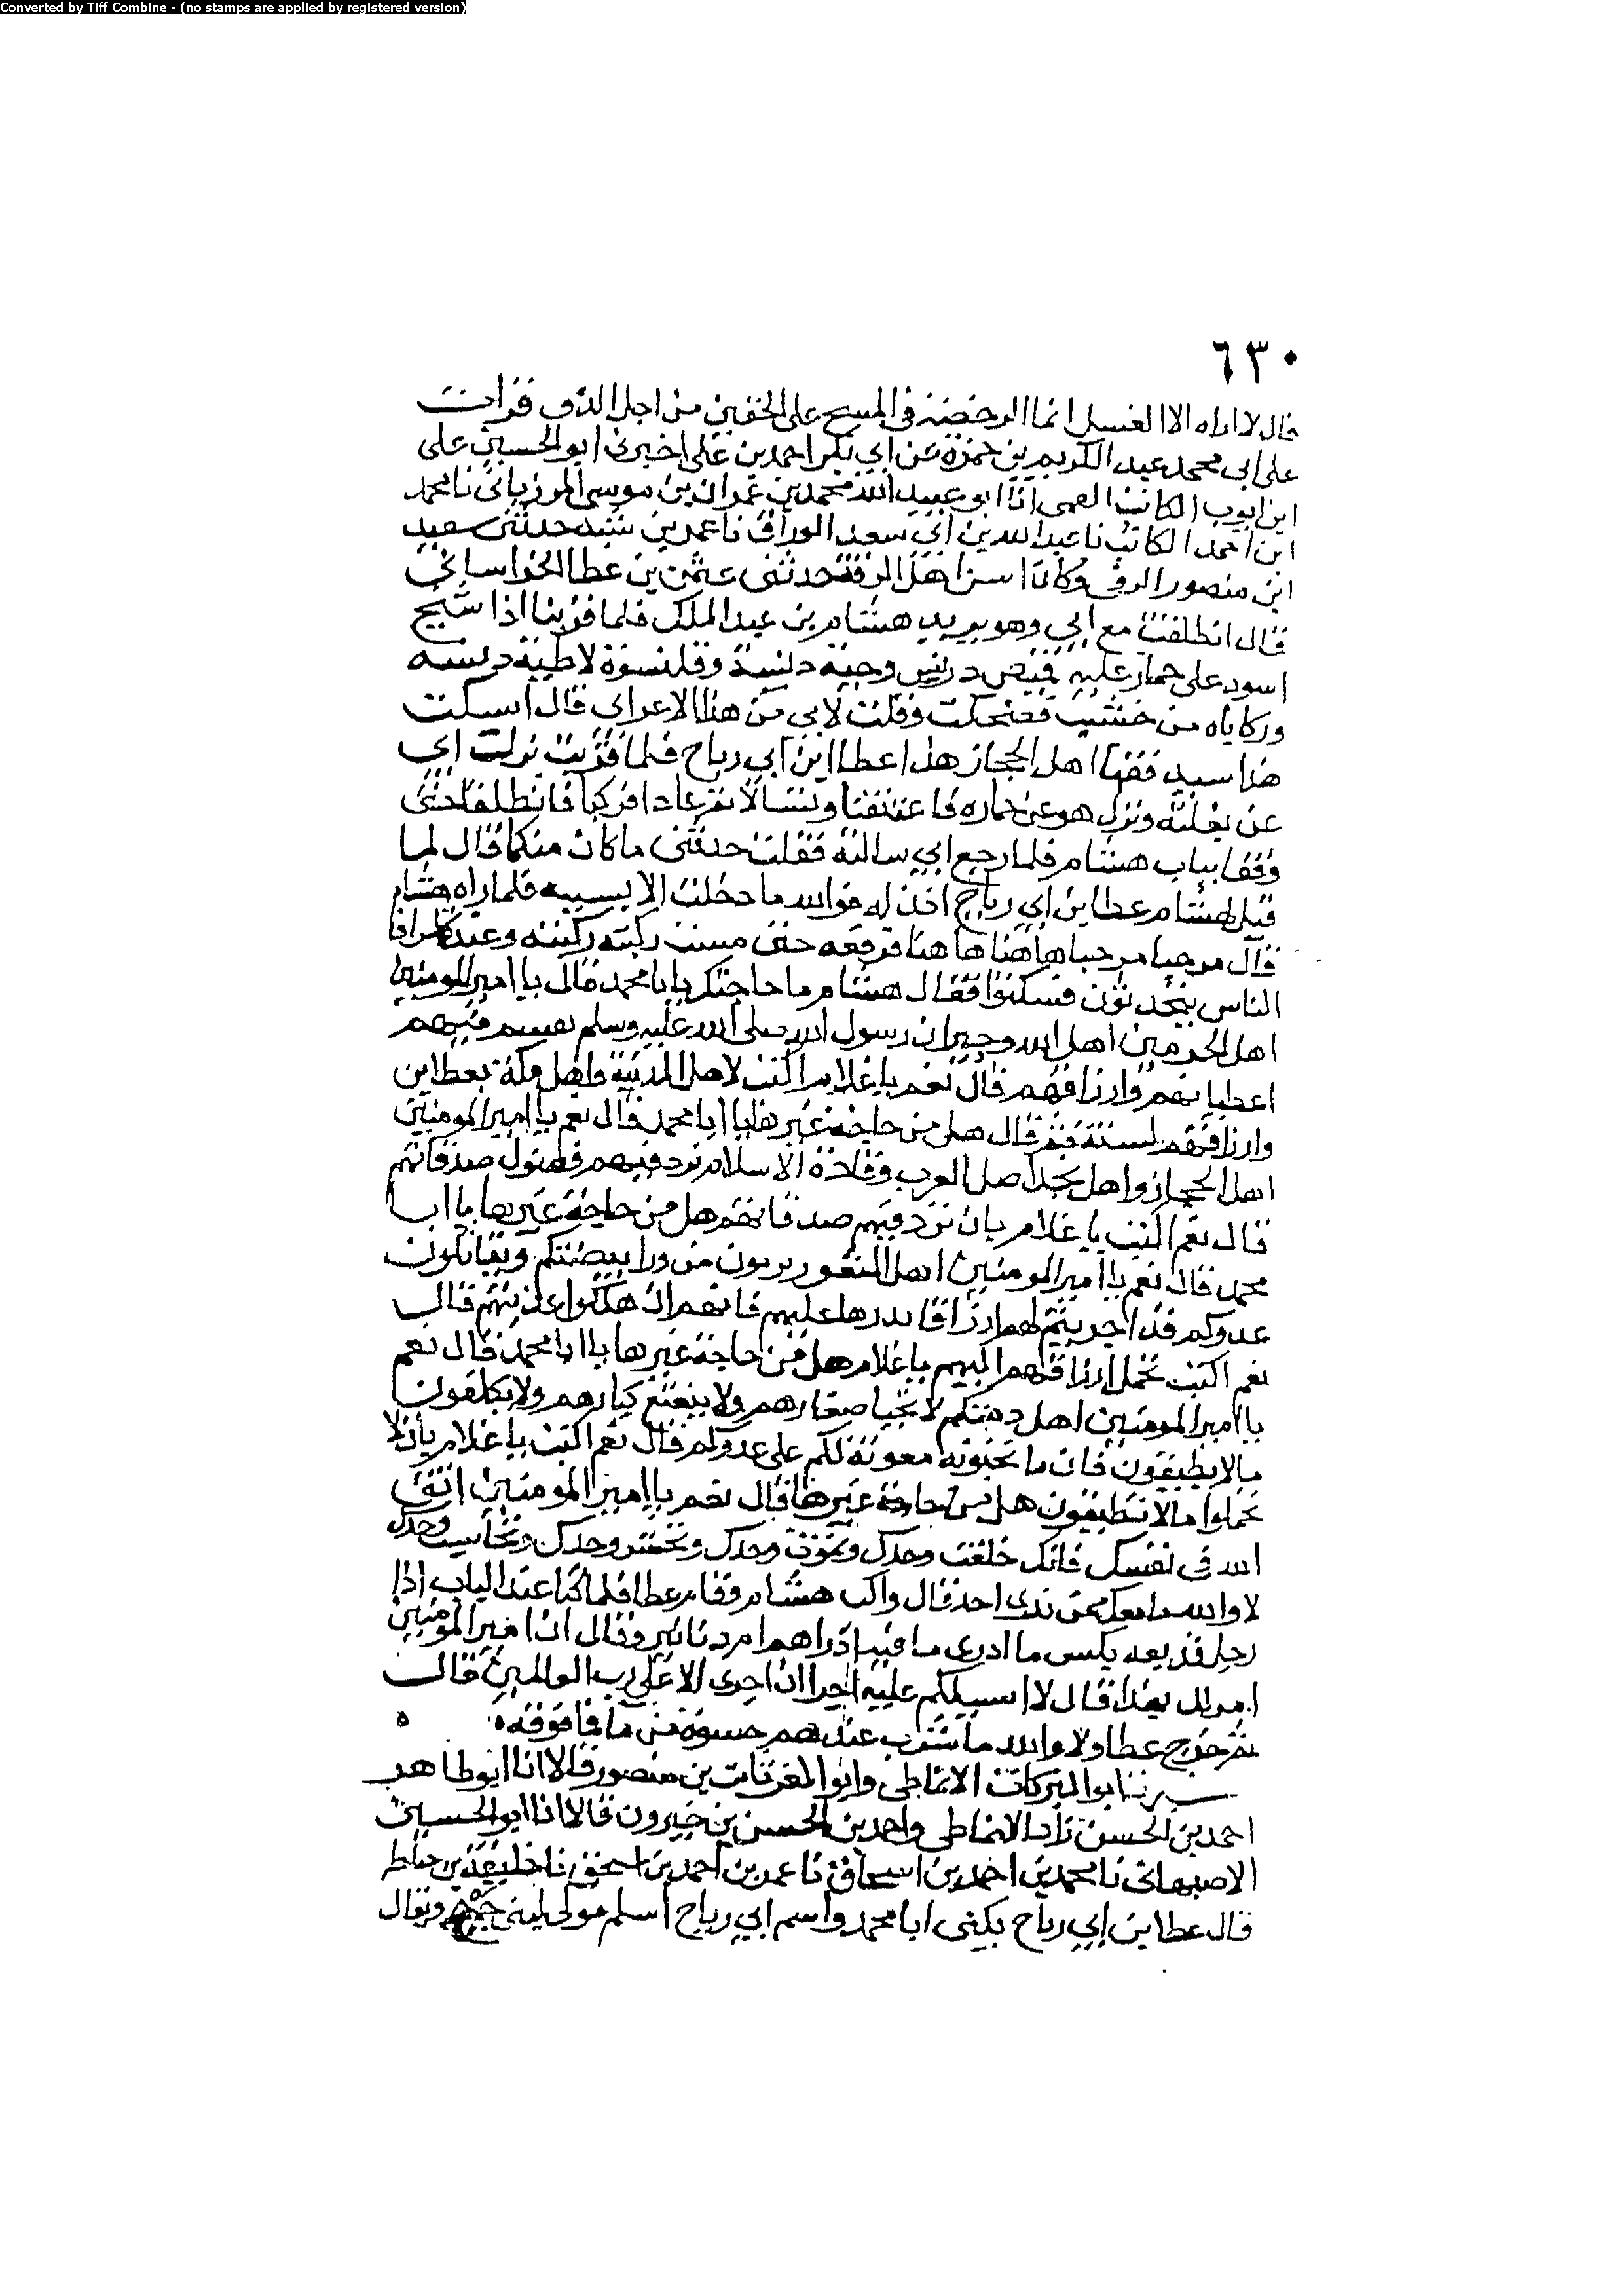 Converted by Tiff Combine - (no stamps are applied by registered version)
٦٣٠
قال لا اراه الا الغسل انما الرخصة في المسح على الخفين من اجل الذي قرات
على ابي محمد عبد الكريم بن حمزة عن ابي بكر احمد بن علي اخبرني ابو الحسين علي
ابن ايوب الكاتب القمي انا ابو عبيد الله محمد بن عمران بن موسى المرزباني نا محمد
ابن احمد الكاتب نا عبد الله بن ابي سعد الوراق نا عمر بن شبه حدثني سعيد
ابن منصور الرقي وكان اسن اهل الرقة حدثني عثمن بن عطا الخراساني
قال انطلقت مع ابي وهو يريد هشام بن عبد الملك فلما قربنا اذا شيخ
اسود على حمار عليه قميص دريس وجبة دنسة وقلنسوة لاطية دنسه
وركاباه من خشب فضحكت وقلت لابي من هذا الاعرابي قال اسكت
هذا سيد فقها اهل الحجاز هذا عطا ابن ابي رباح فلما قرب نزل ابي
عن بغلته ونزل هو عن حماره فاعتنقا وتسالا ثم عادا فركبا فانطلقا حتى
وقفا بباب هشام فلما رجع ابي سالته فقلت حدثني ما كان منكما قال لما
قيل لهشام عطا بن ابي رباح اذن له فوالله ما دخلت الا بسببه فلما راه هشام
قال مرحبا مرحبا هاهنا هاهنا فرفعه حتى مست ركبته ركبته وعنده اشراف
الناس يتحدثون فسكتوا فقال هشام ما حاجتك يابا محمد قال يا امير المومنين
اهل الحرمين اهل الله وجيران رسول الله صلى الله عليه وسلم تقسم فيهم
اعطياتهم وارزاقهم قال نعم يا غلام اكتب لاهل المدينة واهل مكة بعطاين
وارزاقهم لسنة ثم قال هل من حاجة غيرها يا ابا محمد قال نعم يا امير المومنين
اهل الحجاز واهل نجد اصل العرب وقادة الاسلام ترد فيهم فضول صدقاتهم
قال نعم اكتب يا غلام بان ترد فيهم صدقاتهم هل من حاجة غيرها يا ابا
محمد قال نعم يا امير المومنين اهل الثغور يرمون من ورا بيضتكم ويقاتلون
عدوكم قد اجريتم لهم ارزاقا تدرها عليهم فانهم ان هلكوا غزيتم قال
نعم اكتب تحمل ارزاقهم اليهم يا غلام هل من حاجة غيرها يا ابا محمد قال نعم
يا امير المومنين اهل ذمتكم لا تجبا صغارهم ولا يتعتع كبارهم ولا يكلفون
مالا يطيقون فان ما تجبونه معونة لكم على عدوكم قال نعم اكتب يا غلام بان لا
يحملوا مالا يطيقون هل من حاجة غيرها قال نعم يا امير المومنين اتق
الله في نفسك فانك خلقت وحدك وتموت وحدك وتحشر وحدك وتحاسب وحدك
لا والله ما معك ممن ترى احد قال واكب هشام وقام عطا فلما كنا عند الباب اذا
رجل قد تبعه بكيس ما ادري ما فيه ادراهم ام دنانير وقال ان امير المومنين
امر لك بهذا قال لا اسيلكم عليه اجرا ان اجري الا على رب العالمين قال
ثم خرج عطا ولا والله ما شرب عندهم حسوة من ما فما فوقه ه ه
اخبرنا ابو البركات الانماطي وابو العز ثابت بن منصور قالا انا ابو طاهر
احمد بن الحسن زاد الانماطي واحمد بن الحسن بن خيرون قالا انا ابو الحسين
الاصبهاني نا محمد بن احمد بن اسحاق نا عمر بن احمد بن اسحق نا خليفة بن خياط
قال عطا بن ابي رباح يكنى ابا محمد واسم ابي رباح اسلم مولى لبني جمح ويقال